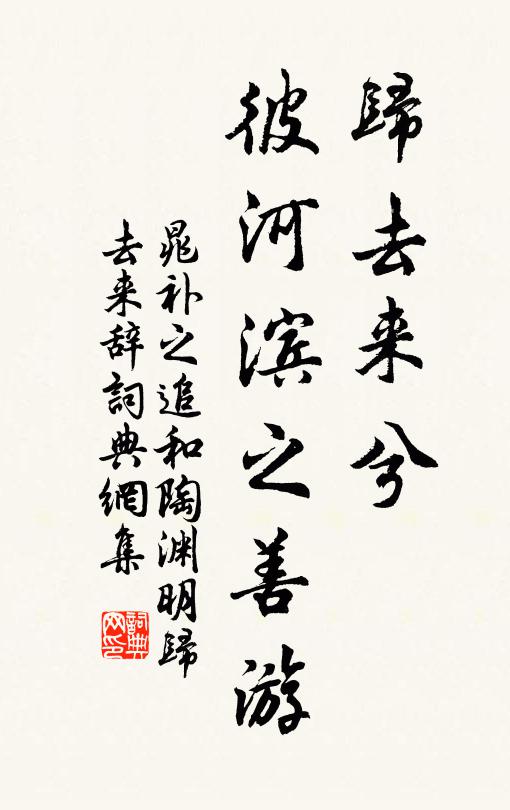 歸去来兮
彼河滨之善游
晁补之追和陶渊明歸
去来辞詞典網集
詞典
网印